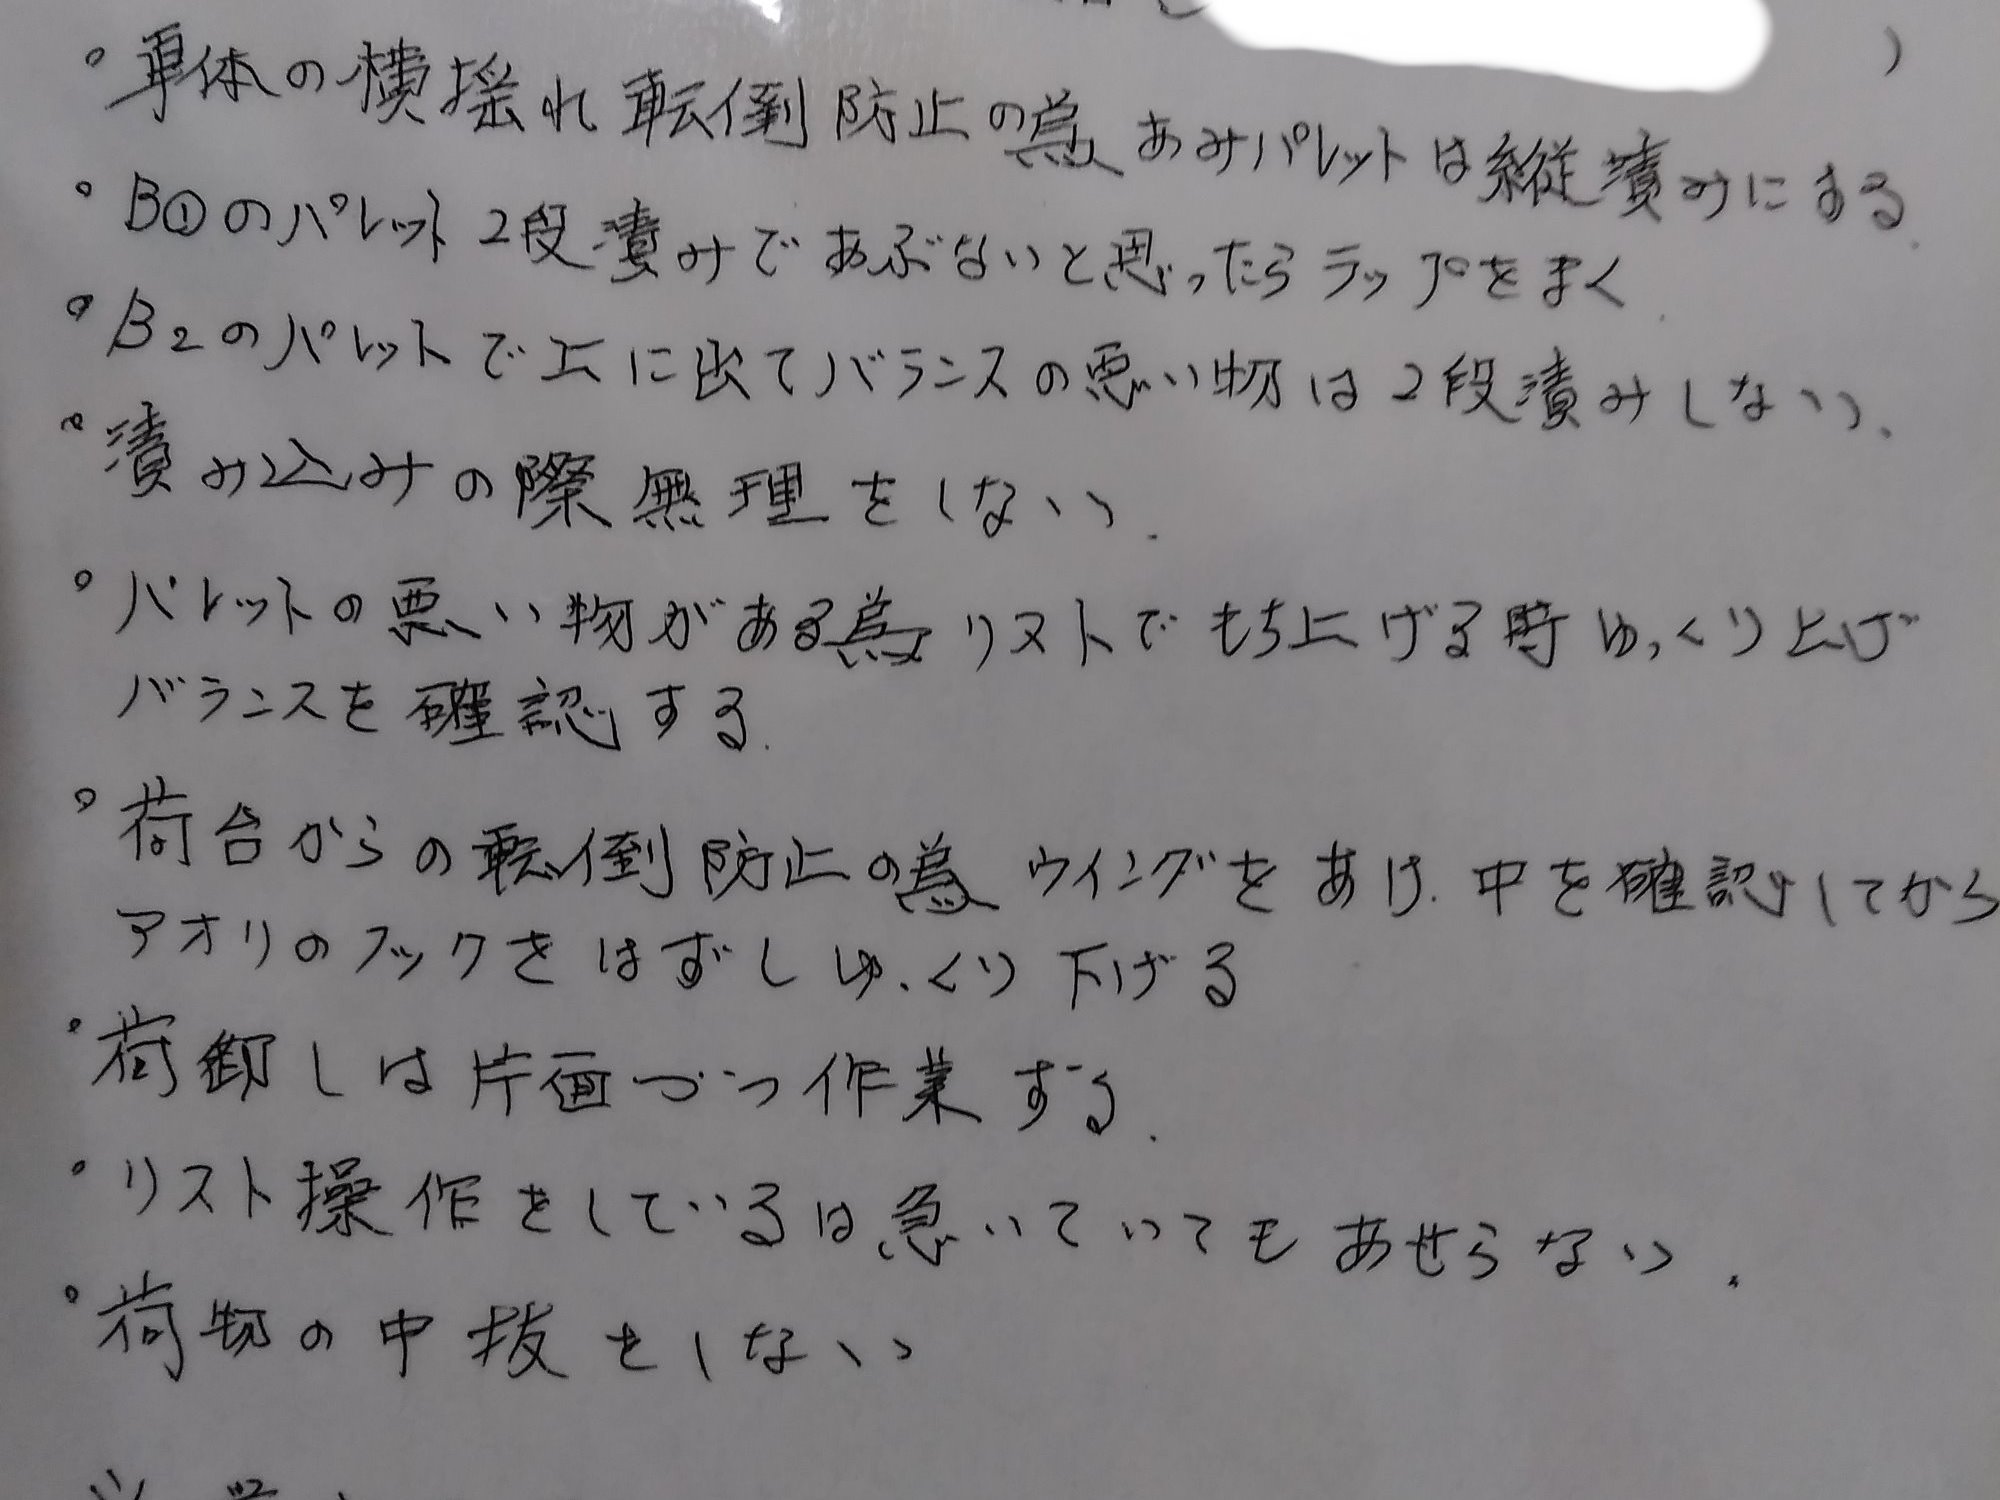 ・車体の横揺れ転倒防止の為あみパレットは縦積みにする.
・B①のパレット2段積みであぶないと思ったらラップをまく.
・B2のパレットで上に出てバランスの悪い物は2段積みしない.
・積み込みの際無理をしない.
・パレットの悪い物がある為リストでもち上げる時ゆっくり上げ
バランスを確認する.
・荷台からの転倒防止の為ウイングをあけ.中を確認してから
アオリのフックをはずしゆっくり下げる
・荷卸しは片面づつ作業する.
・リスト操作をしているは急いていてもあせらない.
・荷物の中抜をしない